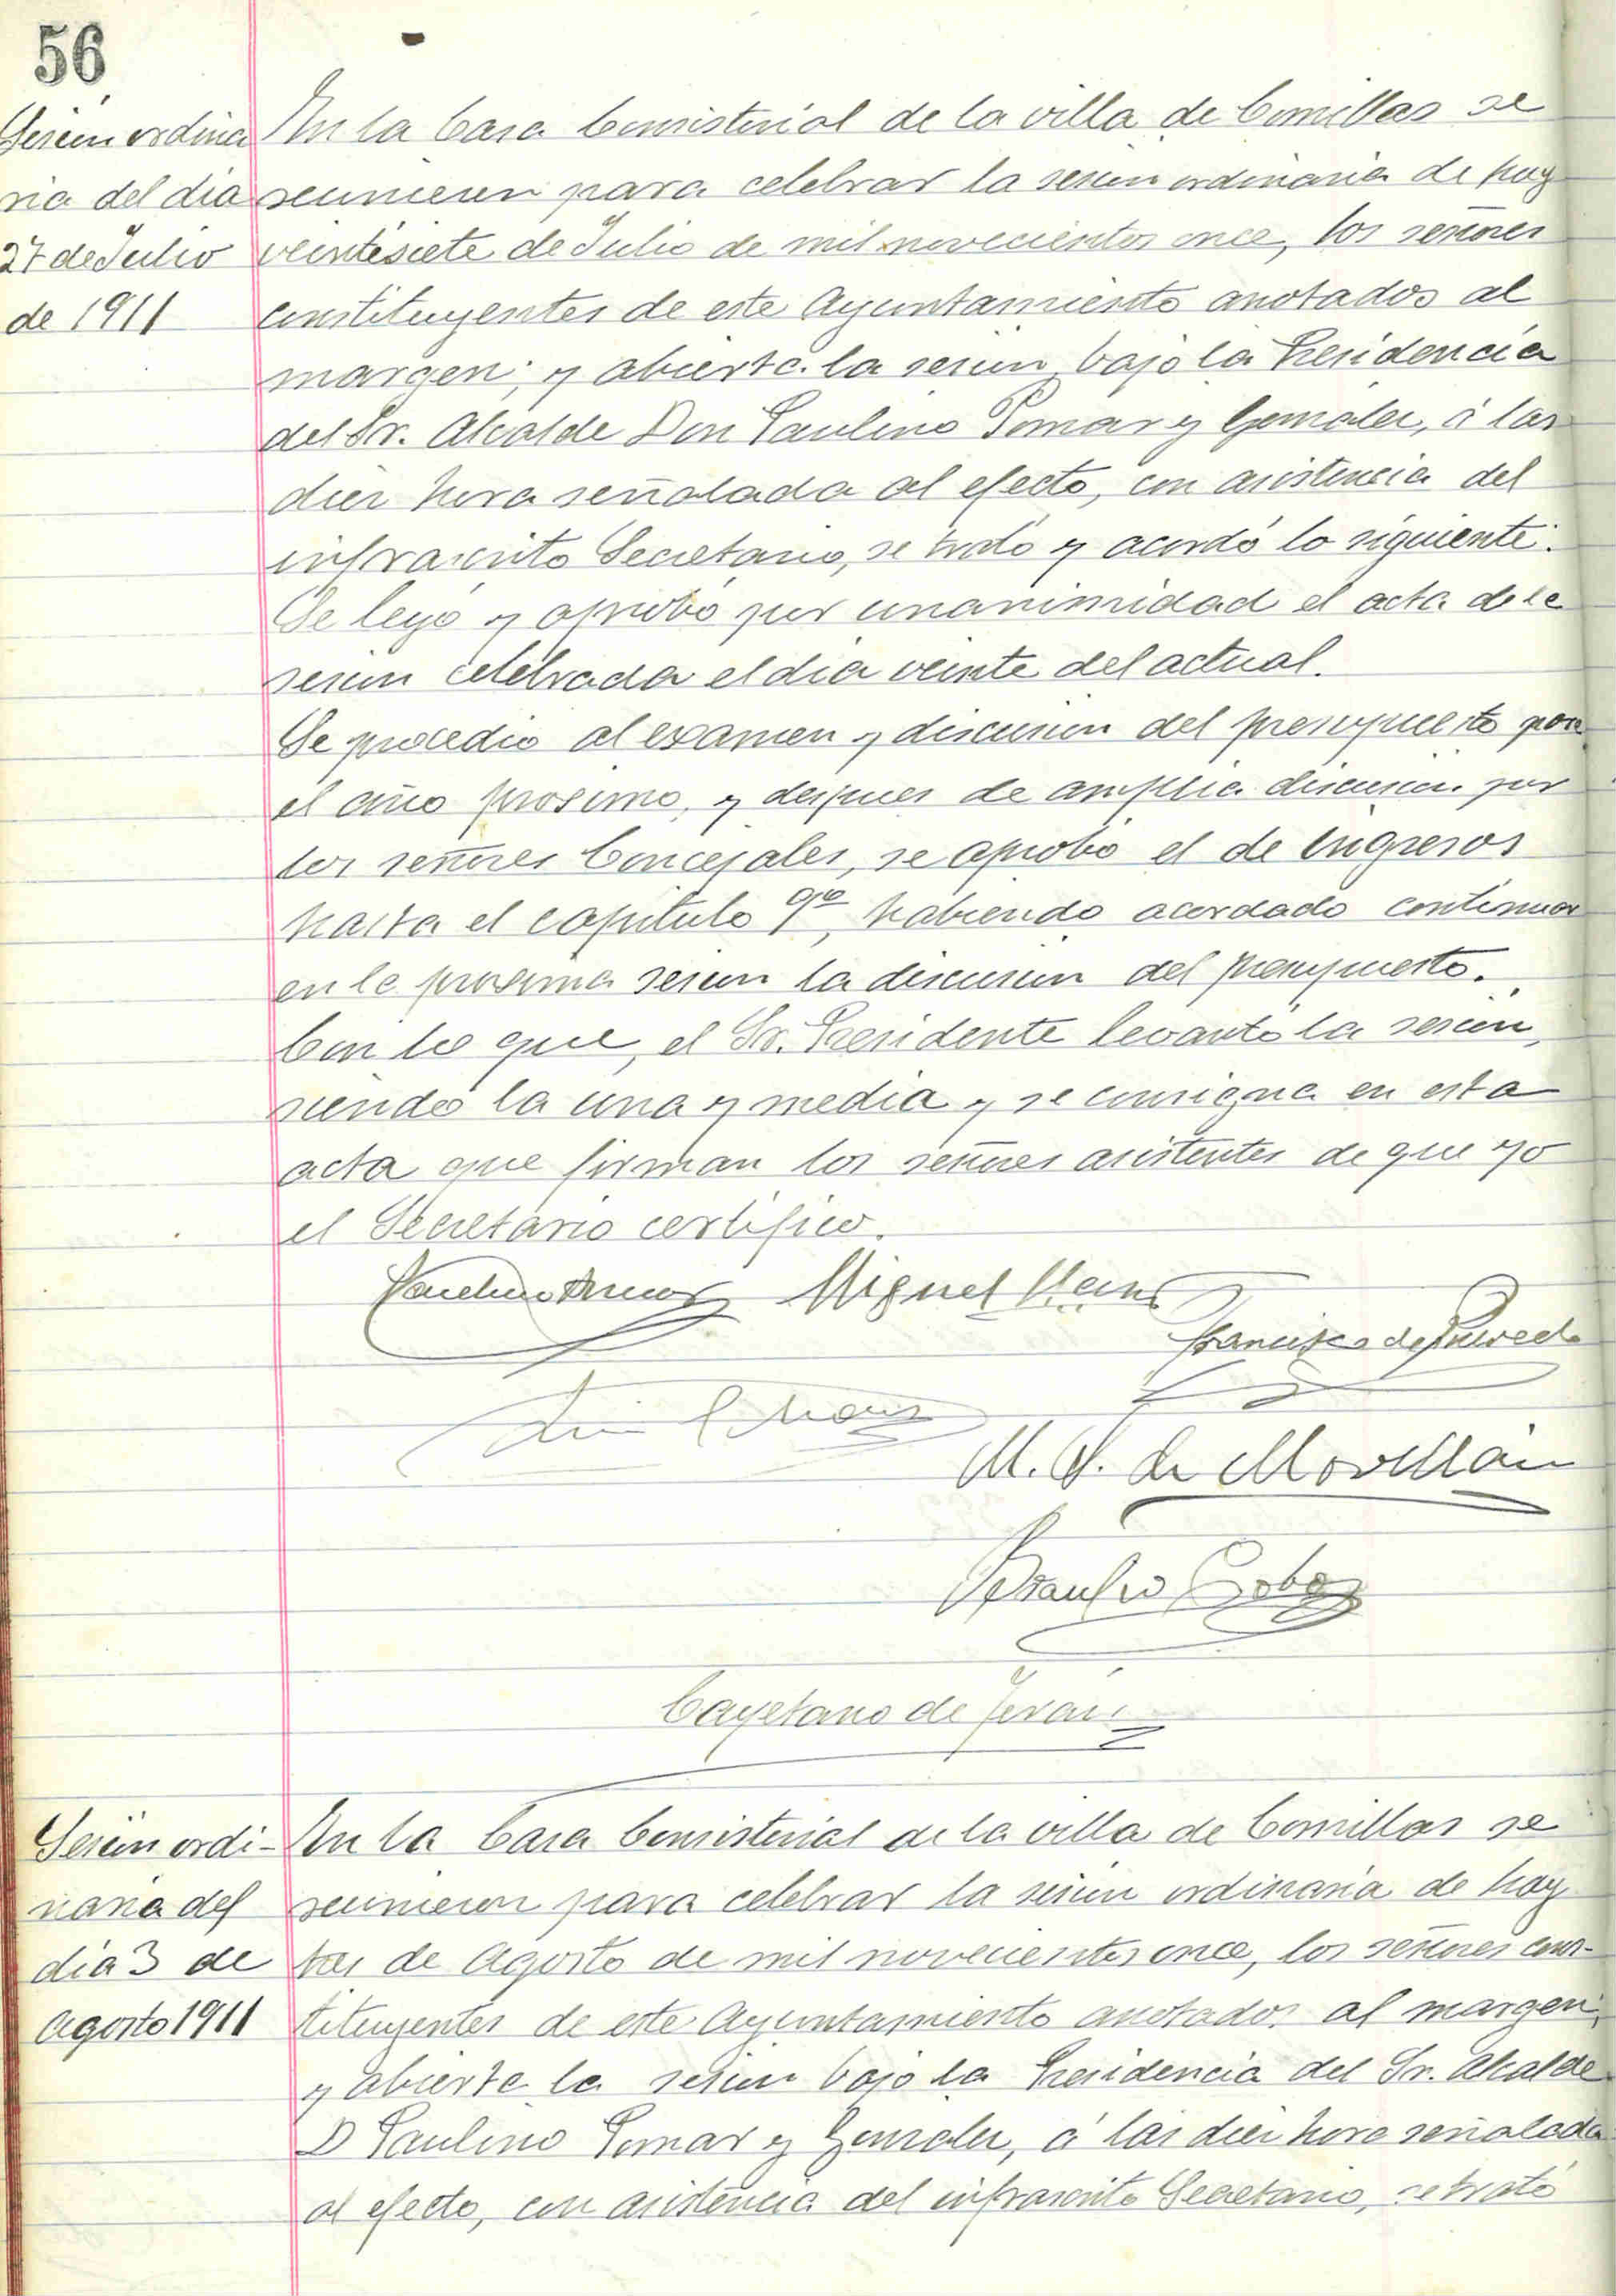 56
Sesión ordina
ria del dia
27 de Julio
de 1911
En la Casa Consistorial de la villa de Comillas se
reunieron para celebrar la sesion ordinaria de hoy
veintisiete de Julio de mil novecientos once, los señores
constituyentes de este Ayuntamiento anotados al
margen; y abierta la sesion bajo la Presidencia
del Sr. Alcalde Don Paulino Pomar y Gonzalez, á las
diez hora señalada al efecto, con asistencia del
infrascrito Secretario, se trató y acordó lo siguiente:
Se leyó y aprobó por unanimidad el acta de la
sesion celebrada el dia veinte del actual.
Se procedió al examen y discusion del presupuesto para
el año prosimo, y despues de amplia discusion por
los señores Concejales, se aprobó el de Ingresos
hasta el capitulo 9º, habiendo acordado continuar
en la proxima sesion la discusion del presupuesto.
Con lo que, el Sr. Presidente levantó la sesion,
siendo la una y media y se consigna en esta
acta que firman los señores asistentes de que yo
el Secretario certifico.
Paulino Pomar Miguel
Francisco de
M. S. de Movellán
Braulio Cobo
Cayetano de Terán
Sesión ordi-
naria del
dia 3 de
Agosto 1911
En la Casa Consistorial de la villa de Comillas se
reunieron para celebrar la sesion ordinaria de hoy
tres de Agosto de mil novecientos once, los señores cons-
tituyentes de este Ayuntamiento anotados al margen;
y abierta la sesion bajo la Presidencia del Sr. Alcalde
D Paulino Pomar y Gonzalez, á las diez hora señalada
al efecto, con asistencia del infrascrito Secretario, se trató